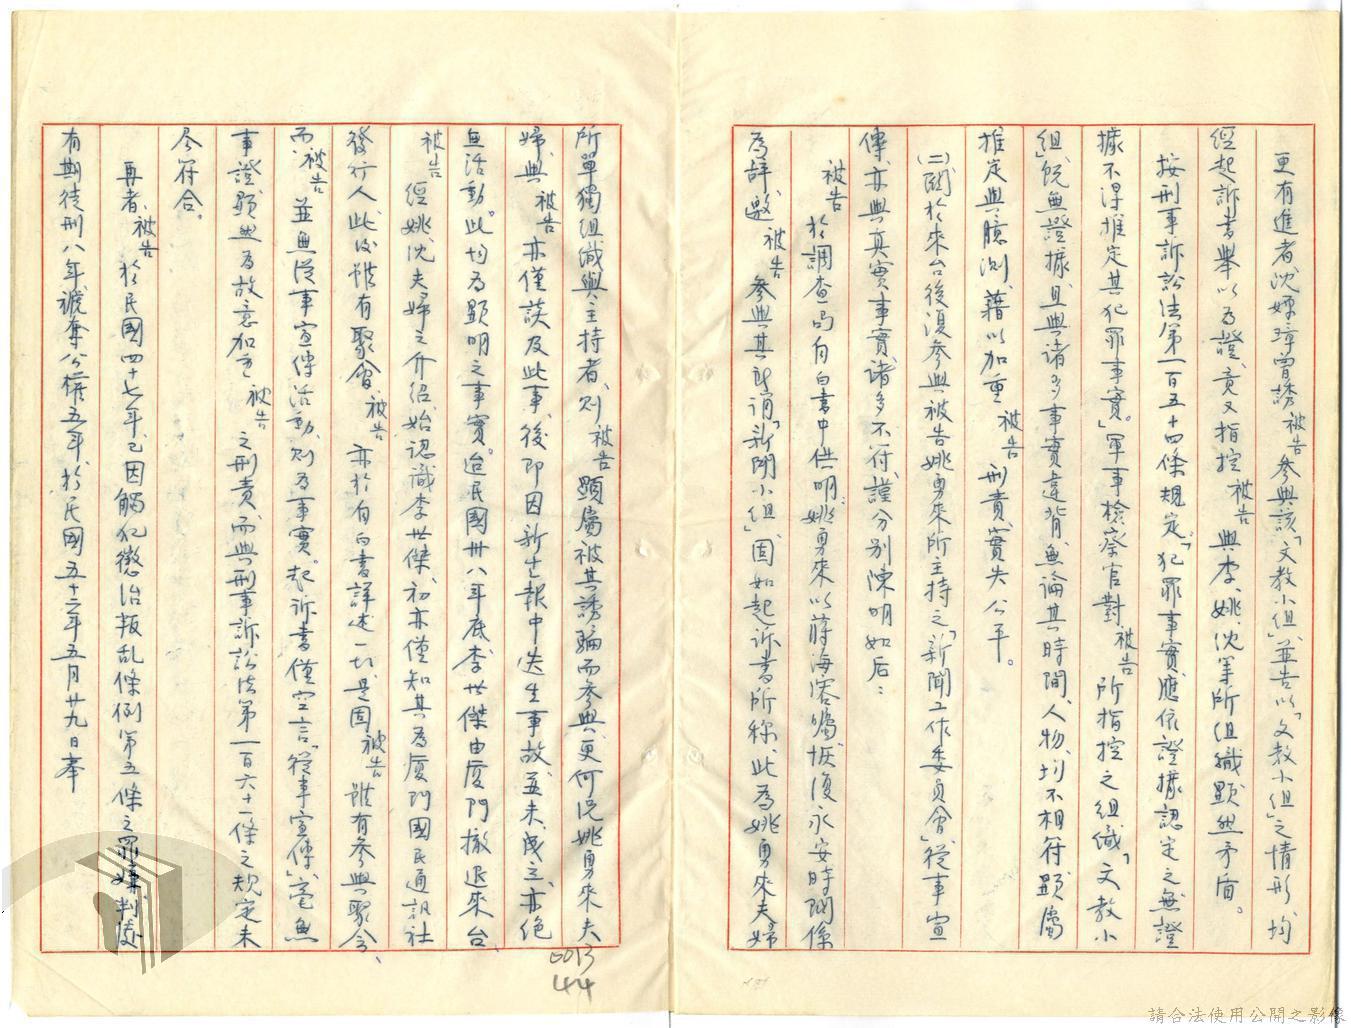 更有進者沈嫄璋曾誘被告參與該「文教小組」並告以「文教小組」之情形均
經起訴書舉以為證、竟又指控被告與李、姚、沈單所組織顯然矛盾。
按刑事訴訟法第一百五十四條規定、「犯罪事實應依證據認定之無證
據不得推定其犯罪事實。」軍事檢察官對被告所指控之組織「文教小
組」既無證據、且與諸多事實違背、無論其時間、人物、均不相符顯屬
推定與臆測、藉以加重被告刑責、實失公平。
(二)關於來台後復參與被告姚勇來所主持之「新聞工作委員會」從事宣
傳、亦與真實事實、諸多不符、謹分別陳明如后：
被告於調查局自白書中供明、姚勇來以蔣海溶囑、恢復永安時關係
為辭、邀被告參與其所謂「新聞小組」、固如起訴書所稱、此為姚勇來夫婦
所單獨組織與主持者、則被告顯屬被其誘騙而參與、更何況姚勇來夫
婦、與被告亦僅談及此事、後即因新生報中失生事故、並未成立、亦絕
無活動。此均為顯明之事實。迨民國卅八年底、李世傑由廈門撤退來台、
被告經姚、沈夫婦之介紹、始認識李世傑、初亦僅知其為廈門國民通訊社
發行人、此後雖有聚會、被告亦於自白書詳述一切、是固被告雖有參與聚会、
而被告並無從事宣傳活動、則為事實。起訴書僅空言「從事宣傳」、毫無
事證、顯然為故意加重被告之刑責、而與刑事訴訟法第一百六十一條之規定未
尽符合。
再者、被告於民國四十七年、已因觸犯懲治叛乱條例第五條之罪嫌、判處
有期徒刑八年褫奪公權五年、於民國五十二年五月廿九日奉
0013
44
請合法使用公開之影像